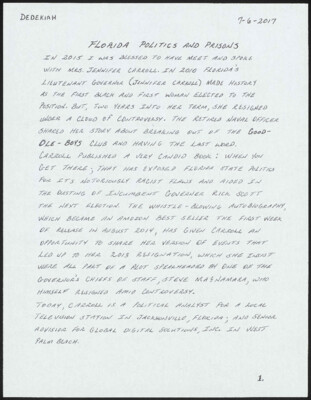 DEDEKIAH 7-6-2017
FLORIDA POLITICS AND PRISONS
IN 2015 I WAS BLESSED TO HAVE MEET AND SPOKE
WITH MRS. JENNIFER CARROLL IN 2010 FLORIDA'S
LIEUTENANT GOVERNOR (JENNIFER CARROLL) MADE HISTORY
AS THE FIRST BLACK AND FIRST WOMAN ELECTED TO THE
POSITION. BUT, TWO YEARS INTO HER TERM, SHE RESIGNED
UNDER A CLOUD OF CONTROVERSY. THE RETIRED NAVAL OFFICER
SHARED HER STORY ABOUT BREAKING OUT OF THE GOOD-
OLE-BOYS CLUB AND HAVING THE LAST WORD.
CARROLL PUBLISHED A VERY CANDID BOOK: WHEN YOU
GET THERE, THAT HAS EXPOSED FLORIDA STATE POLITICS
FOR IT'S NOTORIOUSLY RACIST FLAWS AND AIDED IN
THE OUSTING OF INCUMBENT GOVERNOR RICK SCOTT
THE NEXT ELECTION. THE WHISTLE-BLOWING AUTOBIOGRAPHY,
WHICH BECAME AN AMAZON BEST SELLER THE FIRST WEEK
OF RELEASE IN AUGUST 2014, HAS GIVEN CARROLL AN
OPPORTUNITY TO SHARE HER VERSION OF EVENTS THAT
LED UP TO HER 2013 RESIGNATION, WHICH SHE INSIST
WERE ALL PART OF A PLOT SPEARHEADED BY ONE OF THE
GOVERNOR'S CHIEFS OF STAFF, STEVE MACNAMARA, WHO
HIMSELF RESIGNED AMID CONTROVERSY.
TODAY, CARROLL IS A POLITICAL ANALYST FOR A LOCAL
TELEVISION STATION IN JACKSONVILLE, FLORIDA; AND SENIOR
ADVISOR FOR GLOBAL DIGITAL SOLUTIONS, INC. IN WEST
PALM BEACH.
1.